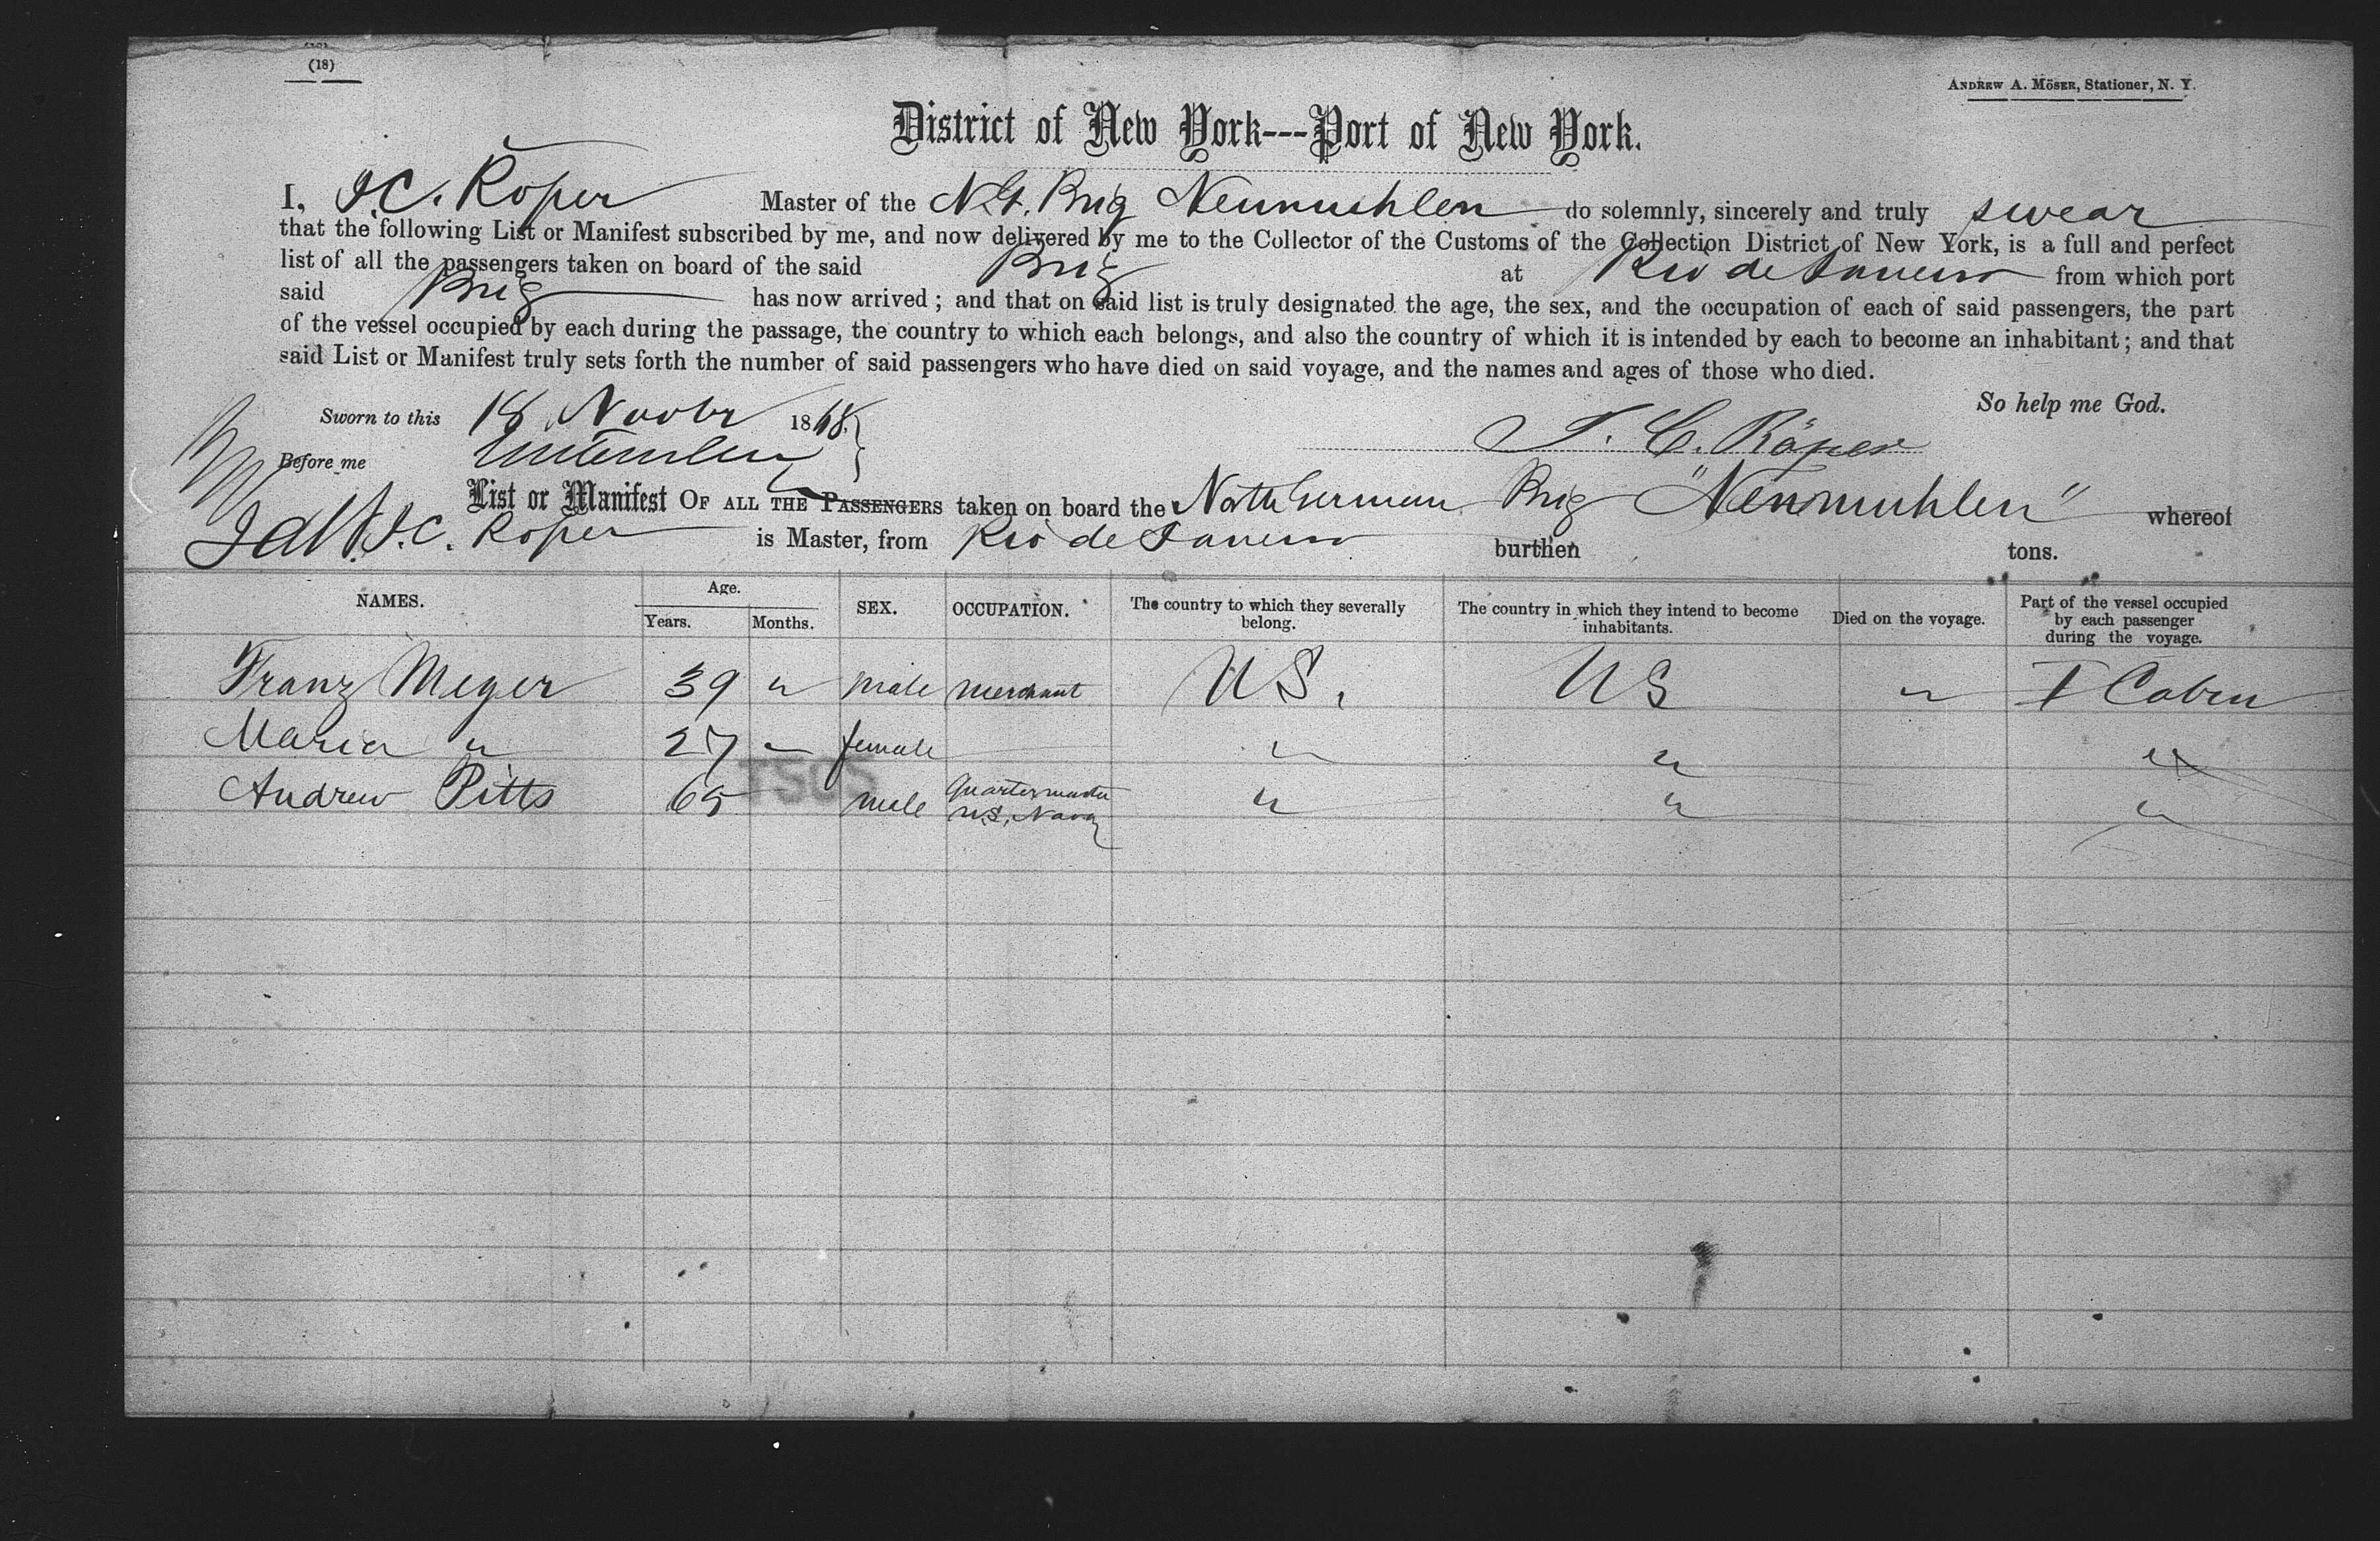 (18)
ANDREW A. MÖSER, Stationer, N. Y.
District of New York---Port of New York.
I, J.C. Röper Master of the N.G. Brig Neumuhlen do solemnly, sincerely and truly swear
that the following List or Manifest subscribed by me, and now delivered by me to the Collector of the Customs of the Collection District of New York, is a full and perfect
list of all the passengers taken on board of the said Brig at Rio de Janeiro from which port
said Brig has now arrived; and that on said list is truly designated the age, the sex, and the occupation of each of said passengers, the part
of the vessel occupied by each during the passage, the country to which each belongs, and also the country of which it is intended by each to become an inhabitant; and that
said List or Manifest truly sets forth the number of said passengers who have died on said voyage, and the names and ages of those who died.
So help me God.
Sworn to this 18 Novbr 1868
J. C. Röper
Before me
List or Manifest OF ALL THE PASSENGERS taken on board the North German Brig "Neumuhlen" whereof
J.C. Roper is Master, from Rio de Janeiro burthen tons.
NAMES. Age. Years. Months. SEX. OCCUPATION. The country to which they severally belong. The country in which they intend to become inhabitants. Died on the voyage. Part of the vessel occupied by each passenger during the voyage.
Franz Meyer 39 " male merchant US. US " I Cabin
Maria " 27 " female " " "
Andrew Pitts 65 male Quartermaster U.S. Navy " " "